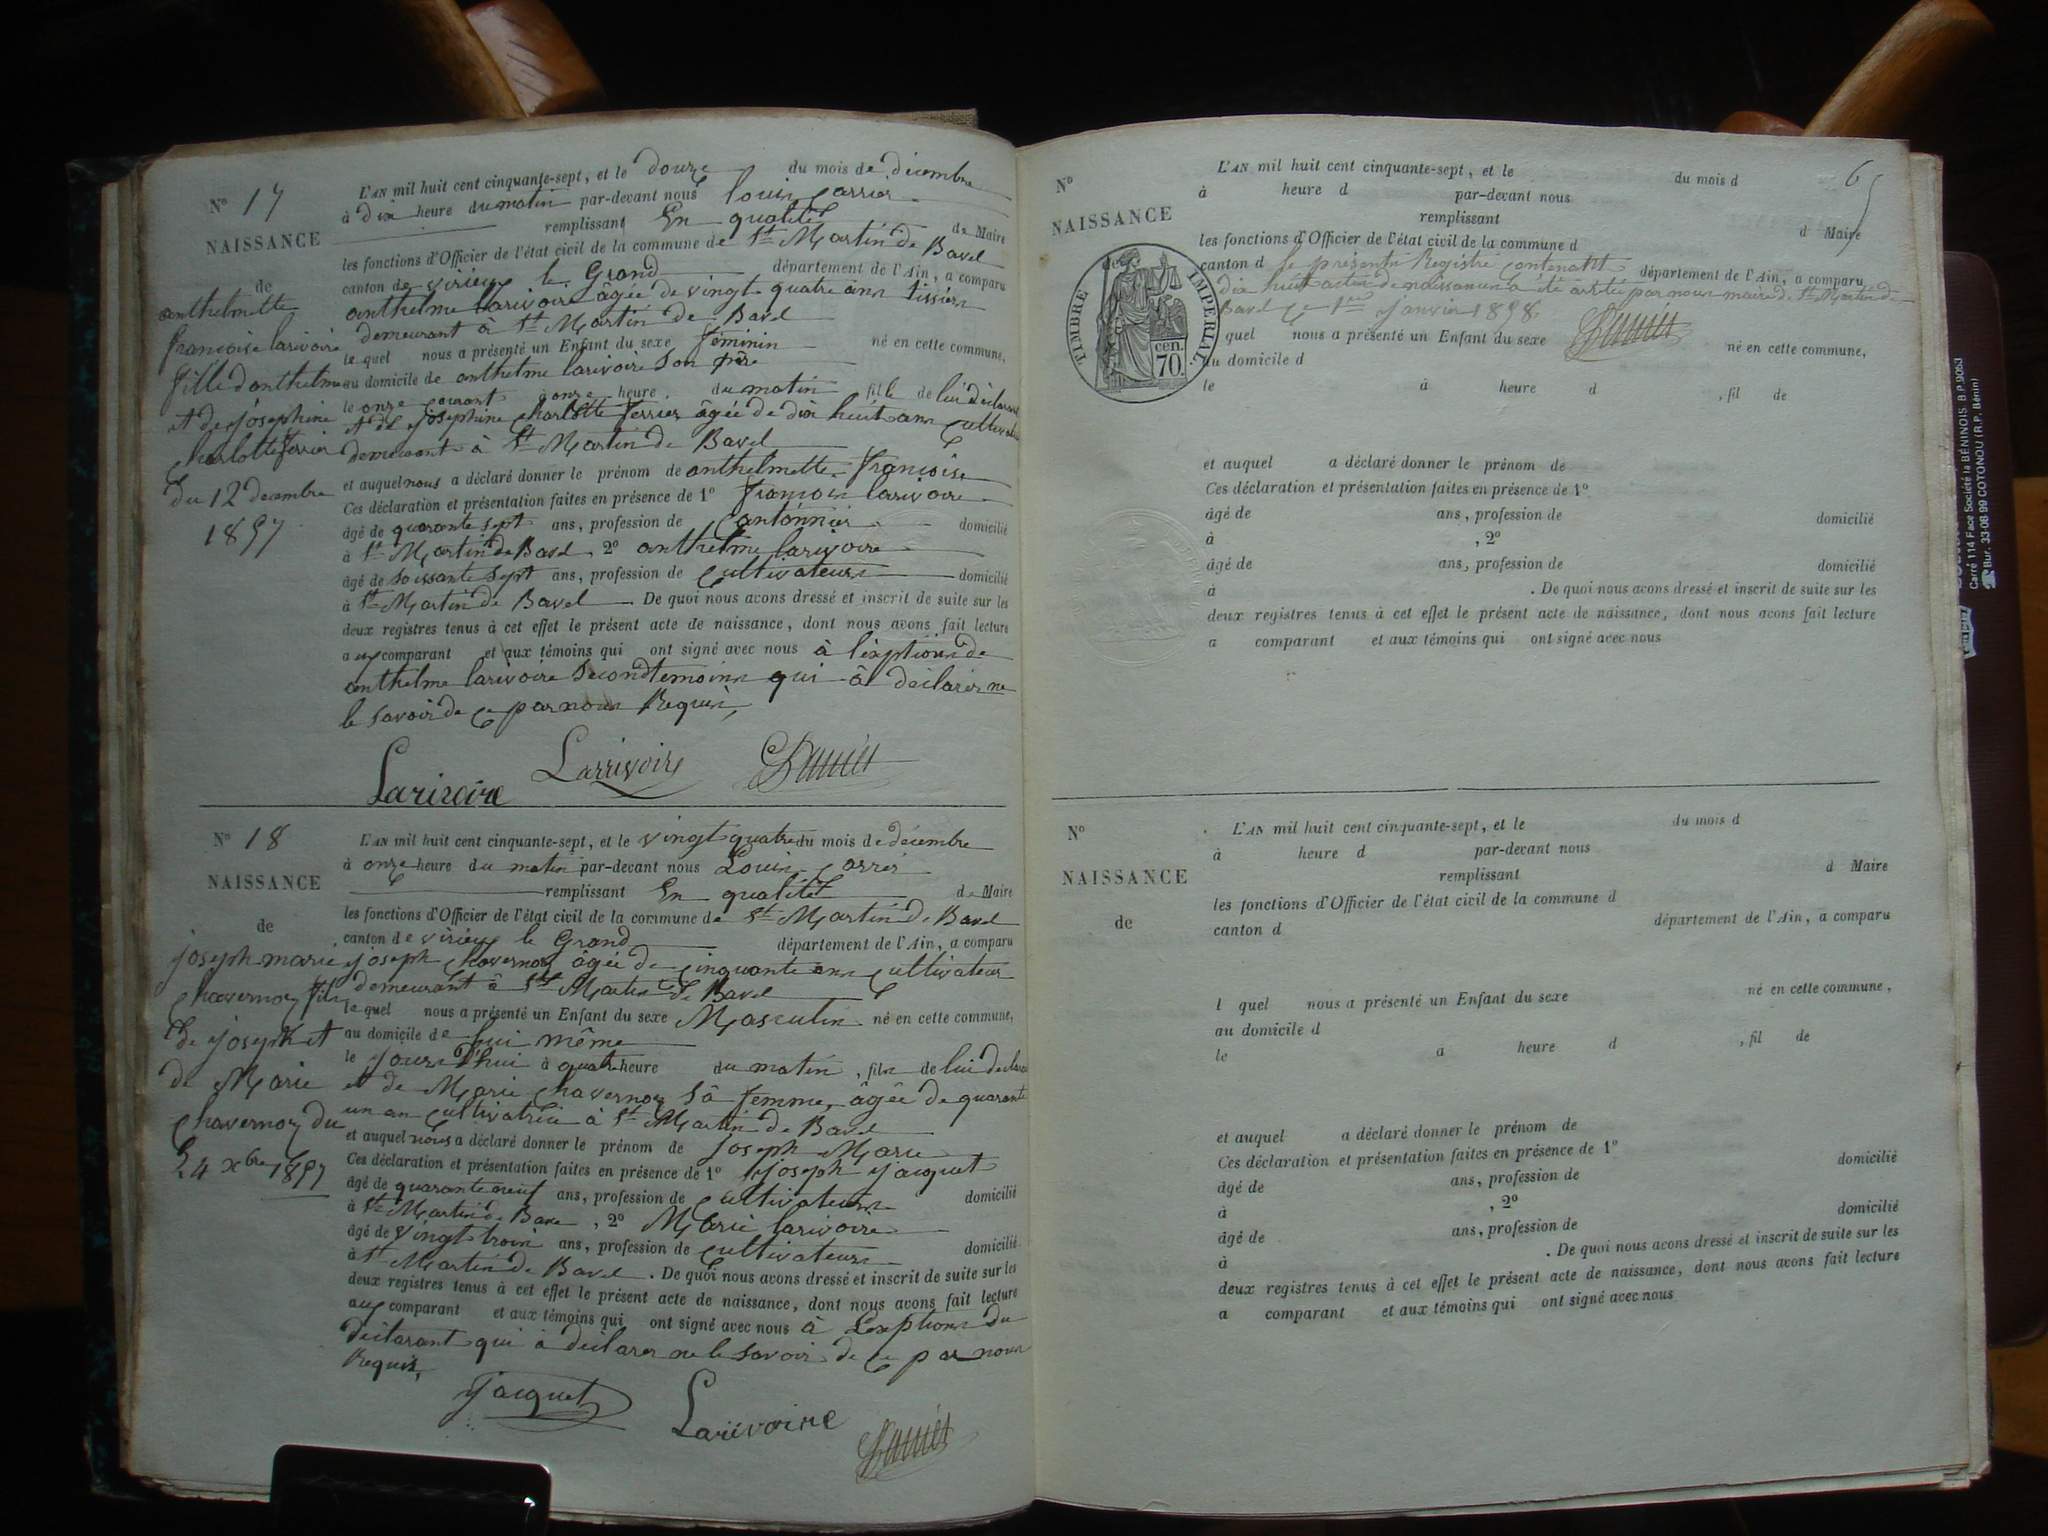 N° 17
NAISSANCE
de
anthelmette
françoise larivoire
fille d'anthelme
et de joséphine
Charlotte ferrier
du 12 decembre
1857
L'AN mil huit cent cinquante-sept, et le douze du mois de décembre
à dix heure du matin par-devant nous louis Carrier
remplissant En qualité de Maire
les fonctions d'Officier de l'état civil de la commune de St Martin de Bavel
canton de virieu le Grand département de l'Ain, a comparu
anthelme larivoire âgée de vingt quatre ans tissier
demeurant à St Martin de Bavel
le quel nous a présenté un Enfant du sexe féminin né en cette commune,
au domicile de anthelme larivoire son père
le onze courant à onze heure du matin fille de lui déclarant
et de joséphine Charlotte ferrier âgée de dix huit ans
demeurant à St Martin de Bavel
et auquel nous a déclaré donner le prénom de anthelmette françoise
Ces déclaration et présentation faites en présence de 1° françois larivoire
âgé de quarante sept ans, profession de Cantonnier domicilié
à St Martin de Bavel, 2° anthelme larivoire
âgé de soissante sept ans, profession de Cultivateur domicilié
à St Martin de Bavel. De quoi nous avons dressé et inscrit de suite sur les
deux registres tenus à cet effet le présent acte de naissance, dont nous avons fait lecture
aux comparant et aux témoins qui ont signé avec nous à l'exption de
anthelme larivoire second temoins qui â déclarer ne
le savoir de ce par nous Requis,
Larivoire Larrivoire
N° 18
NAISSANCE
de
joseph marie
Chavernoz fils
de joseph et
de Marie
Chavernoz du
24 xbre 1857
L'AN mil huit cent cinquante-sept, et le vingt quatre du mois de décembre
à onze heure du matin par-devant nous Louis Carrier
remplissant En qualité de Maire
les fonctions d'Officier de l'état civil de la commune de St Martin de Bavel
canton de virieu le Grand département de l'Ain, a comparu
joseph Chavernoz âgée de cinquante ans cultivateur
demeurant à St Martin de Bavel
le quel nous a présenté un Enfant du sexe Masculin né en cette commune,
au domicile de lui même
le jourd'hui à quatre heure du matin, fils de lui déclarant
et de Marie Chavernoz sâ femme, âgée de quarante
un an cultivatrice à St Martin de Bavel
et auquel nous a déclaré donner le prénom de joseph Marie
Ces déclaration et présentation faites en présence de 1° joseph jacquet
âgé de quarante neuf ans, profession de Cultivateur domicilié
à St Martin de Bave, 2° Marie larivoire
âgé de vingt trois ans, profession de cultivateur domicilié
à St Martin de Bavel. De quoi nous avons dressé et inscrit de suite sur les
deux registres tenus à cet effet le présent acte de naissance, dont nous avons fait lecture
aux comparant et aux témoins qui ont signé avec nous à L'exption du
déclarant qui â déclarer ne le savoir de ce par nous
Requis,
jacquet Larivoire
6
N°
NAISSANCE
TIMBRE IMPERIAL
cen.
70.
L'AN mil huit cent cinquante-sept, et le du mois d
à heure d par-devant nous
remplissant d Maire
les fonctions d'Officier de l'état civil de la commune d
canton d le présent Registre contenant département de l'Ain, a comparu
dix huit actes de naissances a été arrêté par nous maire de St Martin de
Bavel ce 1er janvier 1858
quel nous a présenté un Enfant du sexe né en cette commune,
au domicile d
le à heure d , fil de
et auquel a déclaré donner le prénom de
Ces déclaration et présentation faites en présence de 1°
âgé de ans, profession de domicilié
à , 2°
âgé de ans, profession de domicilié
à . De quoi nous avons dressé et inscrit de suite sur les
deux registres tenus à cet effet le présent acte de naissance, dont nous avons fait lecture
a comparant et aux témoins qui ont signé avec nous
N°
NAISSANCE
de
L'AN mil huit cent cinquante-sept, et le du mois d
à heure d par-devant nous
remplissant d Maire
les fonctions d'Officier de l'état civil de la commune d
canton d département de l'Ain, a comparu
l quel nous a présenté un Enfant du sexe né en cette commune,
au domicile d
le a heure d , fil de
et auquel a déclaré donner le prénom de
Ces déclaration et présentation faites en présence de 1°
âgé de ans, profession de domicilié
à , 2°
âgé de ans, profession de domicilié
à . De quoi nous avons dressé et inscrit de suite sur les
deux registres tenus à cet effet le présent acte de naissance, dont nous avons fait lecture
a comparant et aux témoins qui ont signé avec nous
Carré 114 Face Société la BÉNINOIS B.P. 9053
Bur. 33-06 99 COTONOU (R.P. Bénin)